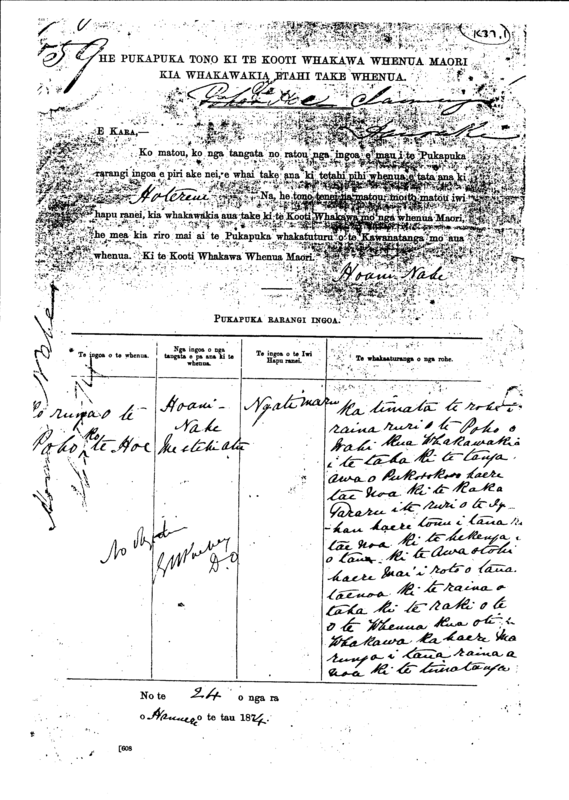 K37.1
HE PUKAPUKA TONO KI TE KOOTI WHAKAWA WHENUA MAORI
KIA WHAKAWAKIA ETAHI TAKE WHENUA.
E KARA,—
Ko matou, ko nga tangata no ratou nga ingoa e mau i te Pukapuka
rarangi ingoa e piri ake nei, e whai take ana ki tetahi pihi whenua e tata ana ki
Hotereni Na, he tono tenei na matou, mo to matou iwi
hapu ranei, kia whakawakia aua take ki te Kooti Whakawa mo nga whenua Maori,
he mea kia riro mai ai te Pukapuka whakatuturu o te Kawanatanga mo aua
whenua. Ki te Kooti Whakawa Whenua Maori.
Hoani Nahe
PUKAPUKA RARANGI INGOA.
Te ingoa o te whenua.
Nga ingoa o nga
tangata e pa ana ki te
whenua.
Te ingoa o te Iwi
Hapu ranei.
Te whakaaturanga o nga rohe.
runga o te
Poho o te Hoe
Hoani
Nahe
me etehi atu
Ngatimaru
Ka timata te rohe i
raina ruri o te Poho o
Wahi kua Whakawakia
i te taha ki te tonga
awa o haere
tae noa ki te Kaka
Tararu i te ruri o te
haere tonu i tana
tae noa ki te hekenga
o tana ki te Awaotohi
haere mai i roto o tana
taenoa ki te raina o
taha ki te raki o te
o te Whenua kua oti
Whakawa ka haere ma
runga i tana raina a
noa ki te timatanga
No te 24 o nga ra
o Hanuere o te tau 1874.
[608